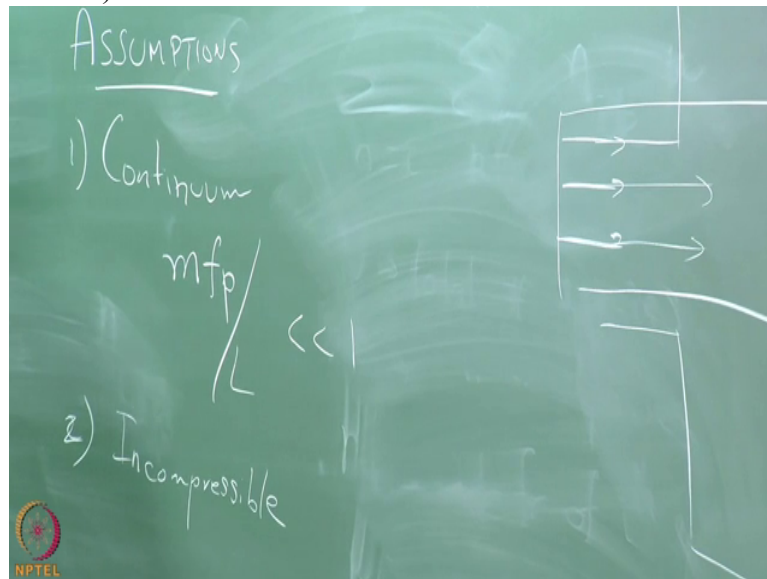 ASSUMPTIONS
1) Continuum
mfp/L << 1
2) Incompressible
NPTEL